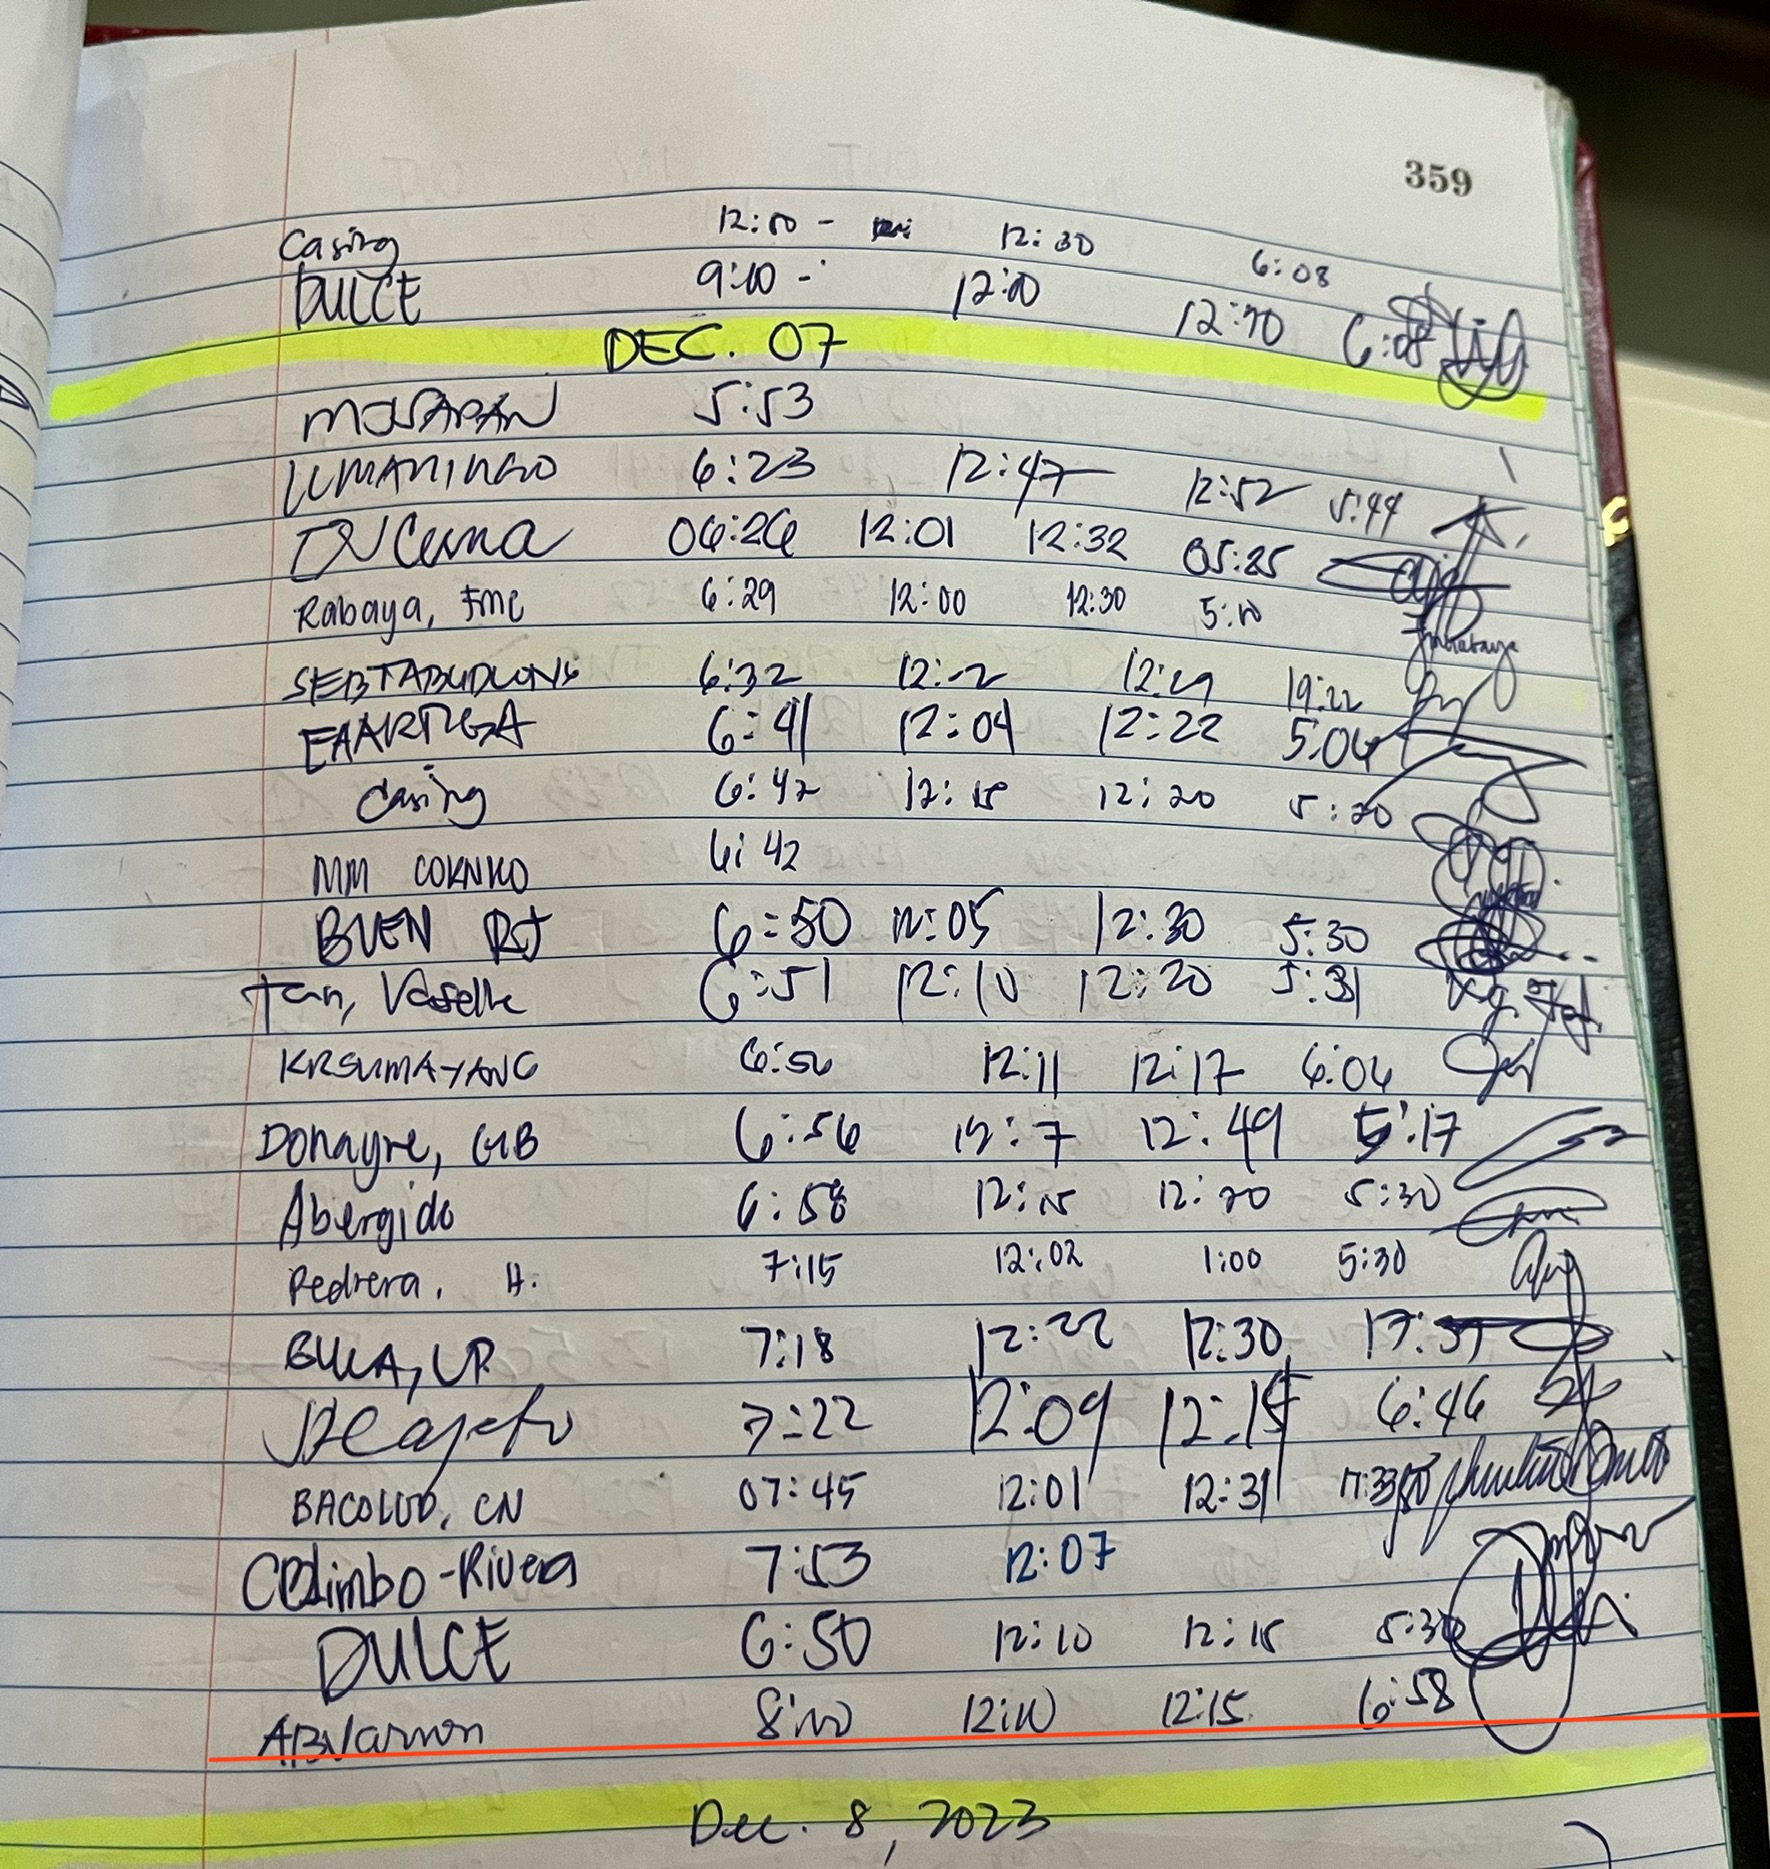 359
Casing 12:00 - 12:30 6:08
DULCE 9:00 - 12:00 12:30 6:08
DEC. 07
5:53
LUMANINGO 6:23 12:47 12:52 5:44
06:26 12:01 12:32 05:25
Rabaya, FMC 6:29 12:00 12:30 5:10
6:32 12:19 19:22
EAARTIGA 6:41 12:04 12:22 5:06
Casing 6:42 12:15 12:20 5:20
MM 6:42
BUEN RJ 6:50 12:05 12:30 5:30
Tan, 6:51 12:10 12:20 5:31
KRSUMAYANG 6:56 12:11 12:17 6:06
Donayre, GIB 6:56 12:49 5:17
Abergido 6:58 12:15 12:20 5:30
Pedrera, H. 7:15 12:02 1:00 5:30
7:18 12:22 12:30 17:37
7:22 12:09 12:15 6:46
BACOLOD, CN 07:45 12:01 12:31
Colimbo-Rivera 7:53 12:07
DULCE 6:50 12:10 12:15 5:30
8:00 12:10 12:15 6:58
Dec. 8, 2023